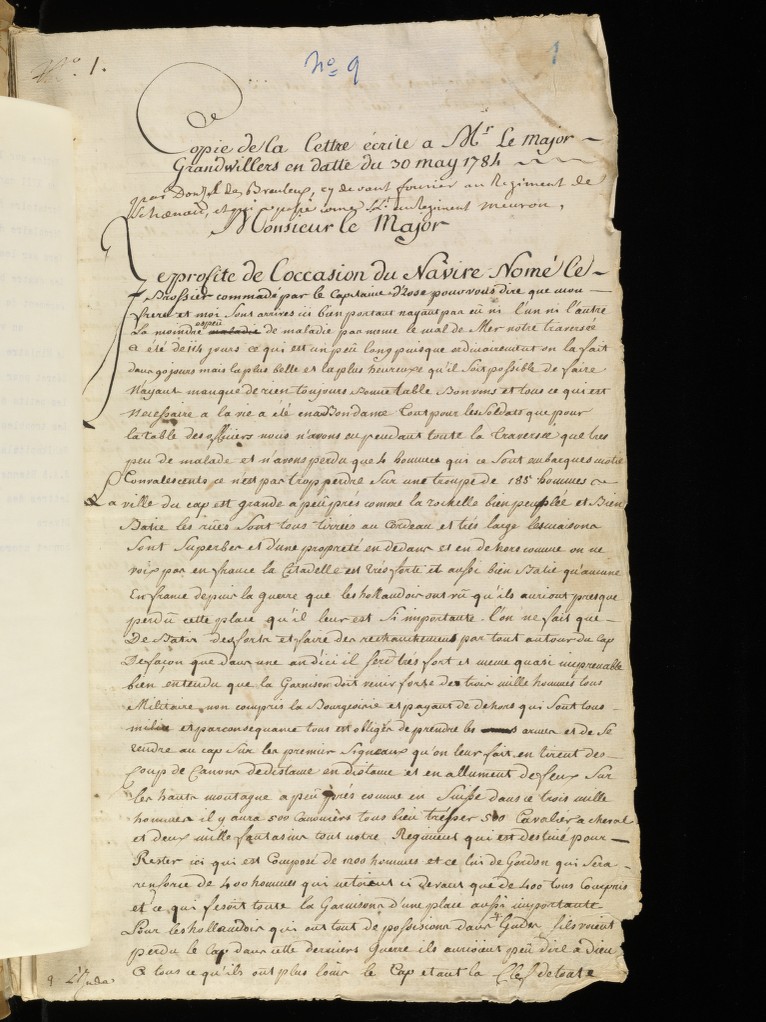 No. 1.
No 9
1
Copie de la lettre écrite a Mr. Le Major
Grandwillers en datte du 30 may 1784
par Donzel des Breuleux, cy devant fourier au Regiment de
et qui passé comme Regiment meuron,
Monsieur le Major
Je profite de l'occasion du Navire Nomé Le
Brossier commadé par le Capitaine d'Rose pour vous dire que mon
frere et moi sont arrives ici bien portant nayant pas eü ni l'un ni l'autre
La moindre espeü maladie de maladie pas meme le mal de Mer notre traversée
a été de 114 jours ce qui est un peü long puisque ordinairement on la fait
dans 90 jours mais la plus belle et la plus heureuse qu'il soit possible de faire
N'ayant manqué de rien toujours Bonne table Bon vins et tous ce qui est
Necessaire a la vie a été en aBondance tout pour les Soldats que pour
la table des officiers nous n'avons eu pendant toute la traversée que tres
peu de malade et n'avons perdu que 4 hommes qui ce sont embarques
Convalescents ce n'est pas trop perdre sur une troupe de 185 hommes
La ville du cap est grande a peü près comme la rochelle bien peuplée et Bien
Batie les rües sont tous tirrées au Cordeau et tres large les maisons
sont superbes et d'une propreté en dedans et en dehors comme on ne
voix pas en france la Citadelle est tres forte et aussi bien Batie qu'aucune
En france depuis la guerre que les hollandois ont vü qu'ils auriont presque
perdü cette place qu'il leur est si importante l'on ne fait que
De Batir des forts et faire des retranchement par tout autour du Cap
De façon que dans une an d'ici il sera tres fort et meme quasi imprenable
bien entendu que la Garnison doit venir forte de trois mille hommes tous
Militaire non compris la Bourgeoisie et paysant de dehors qui sont tous
milice et par consequance tous est obligés de prendre les armes et de se
rendre au cap sur les premier signeaux qu'on leur fait en tirent des
Coup de Canons de distame en distame et en allument de feux sur
les hauts montagne a peü près comme en Suisse dans ce trois mille
hommes il y aura 500 canoniers tous bien 500 Cavalier a cheval
et deux mille fantasins tout notre Regiment qui est destiné pour
Rester ici qui est Composé de 1200 hommes et ce lui de Gordon qui sera
renforce de 400 hommes qui netoient ci devant que de 400 tous Compris
et ce qui fesoit toute la Garnisons d'une place aussi importante
Pour les hollandois qui ont tout de possisions dans L'Indes s'ils voient
perdu le Cap dans cette derniere Guerre ils auriont peü dire a Dieu
a tous ce qu'ils ont plus loins le Cap etant la Clef de toute